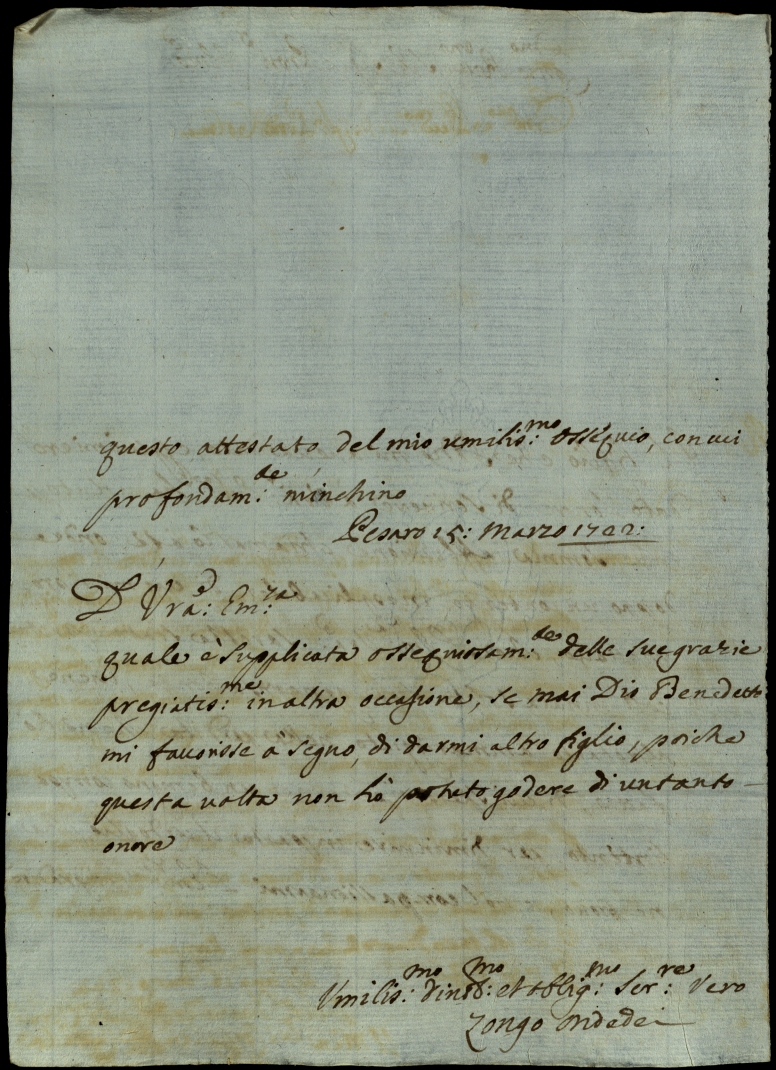 questo attestato del mio umilis:mo ossequio, con cui
profondam:te m'inchino
Pesaro 15: Marzo 1722:
D Vra: Em:za
quale è supplicata ossequiosam:te delle sue grazie
pregiatis:me in altra occasione, se mai Dio Benedetto
mi favorisse a' segno, di darmi altro figlio, poiche
questa volta non hò potuto godere di un tanto
onore
Umilis:mo divot:mo et oblig:mo Ser:re Vero
Zongo Ondedei